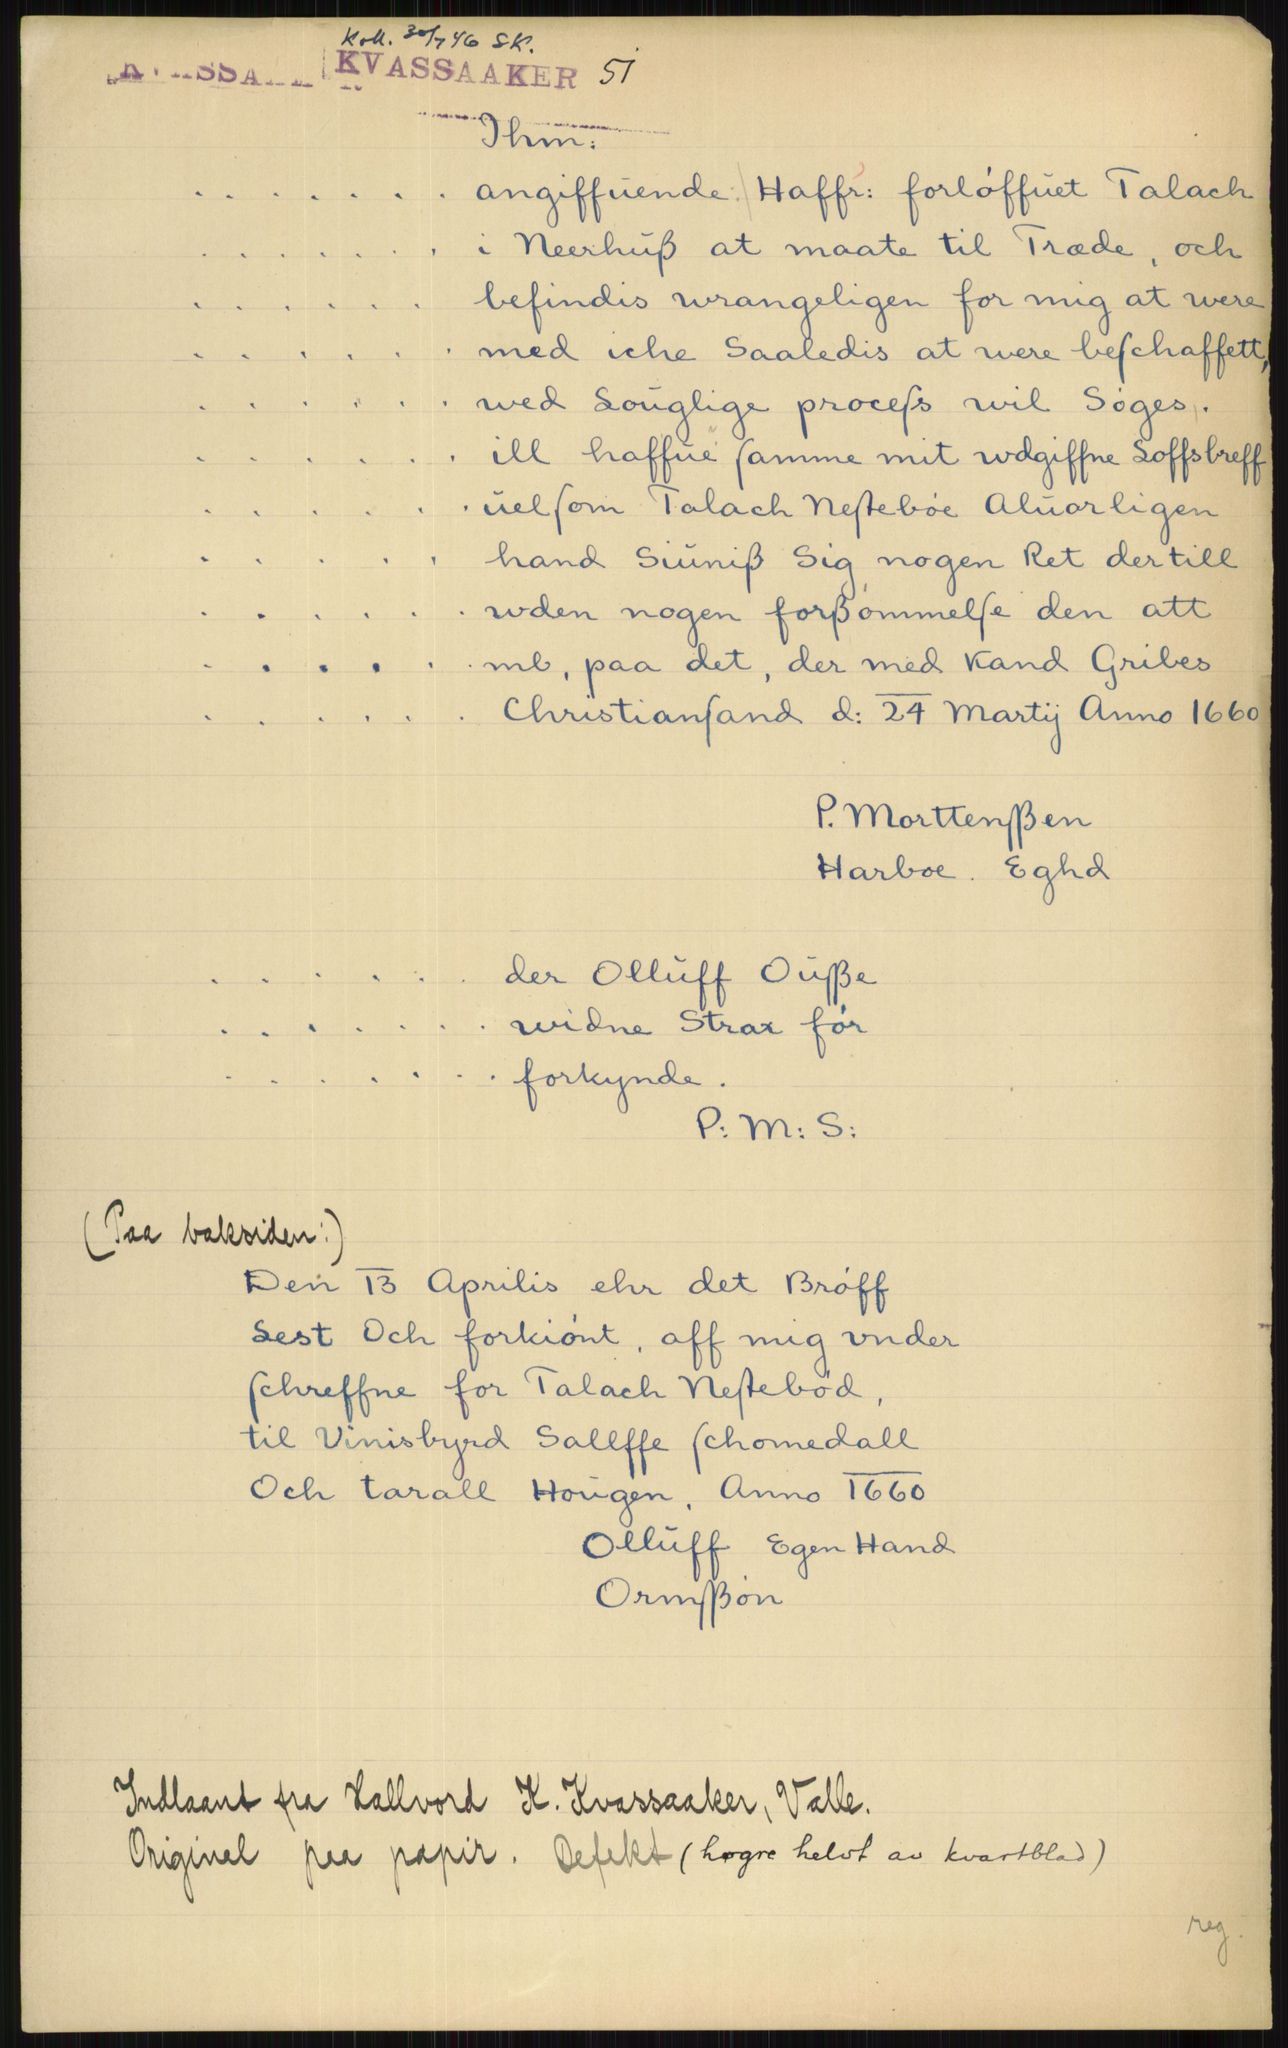 Koll. 30/7 46 SK.
KVASSAAKER 51
Ihm:
. . . . . . . angiffuende. Haffr: forlóffuet Talach
. . . . . . . i Neerhuß at maate til Træde, och
. . . . . . befindis wrangeligen for mig at were
. . . . . . med iche Saaledis at were beſchaffett,
. . . . . . wed Louglige proceſs wil Søges.
. . . . . . ill haffue ſamme mit wdgiffne Loffsbreff
. . . . . . uelſom Talach Neſtebóe Aluorligen
. . . . . hand Siuniß Sig nogen Ret dertill
. . . . . . wden nogen forßommelſe den att
. . . . . . mb, paa det, der med Kand Gribes
. . . . . . Chriſtianſand d: 24 Martij Anno 1660
P. Morttenſßen
Harboe. Eghd
. . . . . . der Olluff Ouſße
. . . . . . . widne Strax fór
. . . . . . . forkynde.
P: M: S:
(Paa baksiden:)
Den 13 Aprilis ehr det Bróff
Lest Och forkiónt, aff mig vnder
ſchreffne for Talach Neſtebód,
til Vinisbyrd Sallffe ſchomedall
Och tarall Hougen, Anno 1660
Olluff Egen Hand
Ormſßón
Indlaant fra Hallvord K. Kvassaaker, Valle.
Original paa papir. Defekt (høgre helvt av kvartblad)
reg.